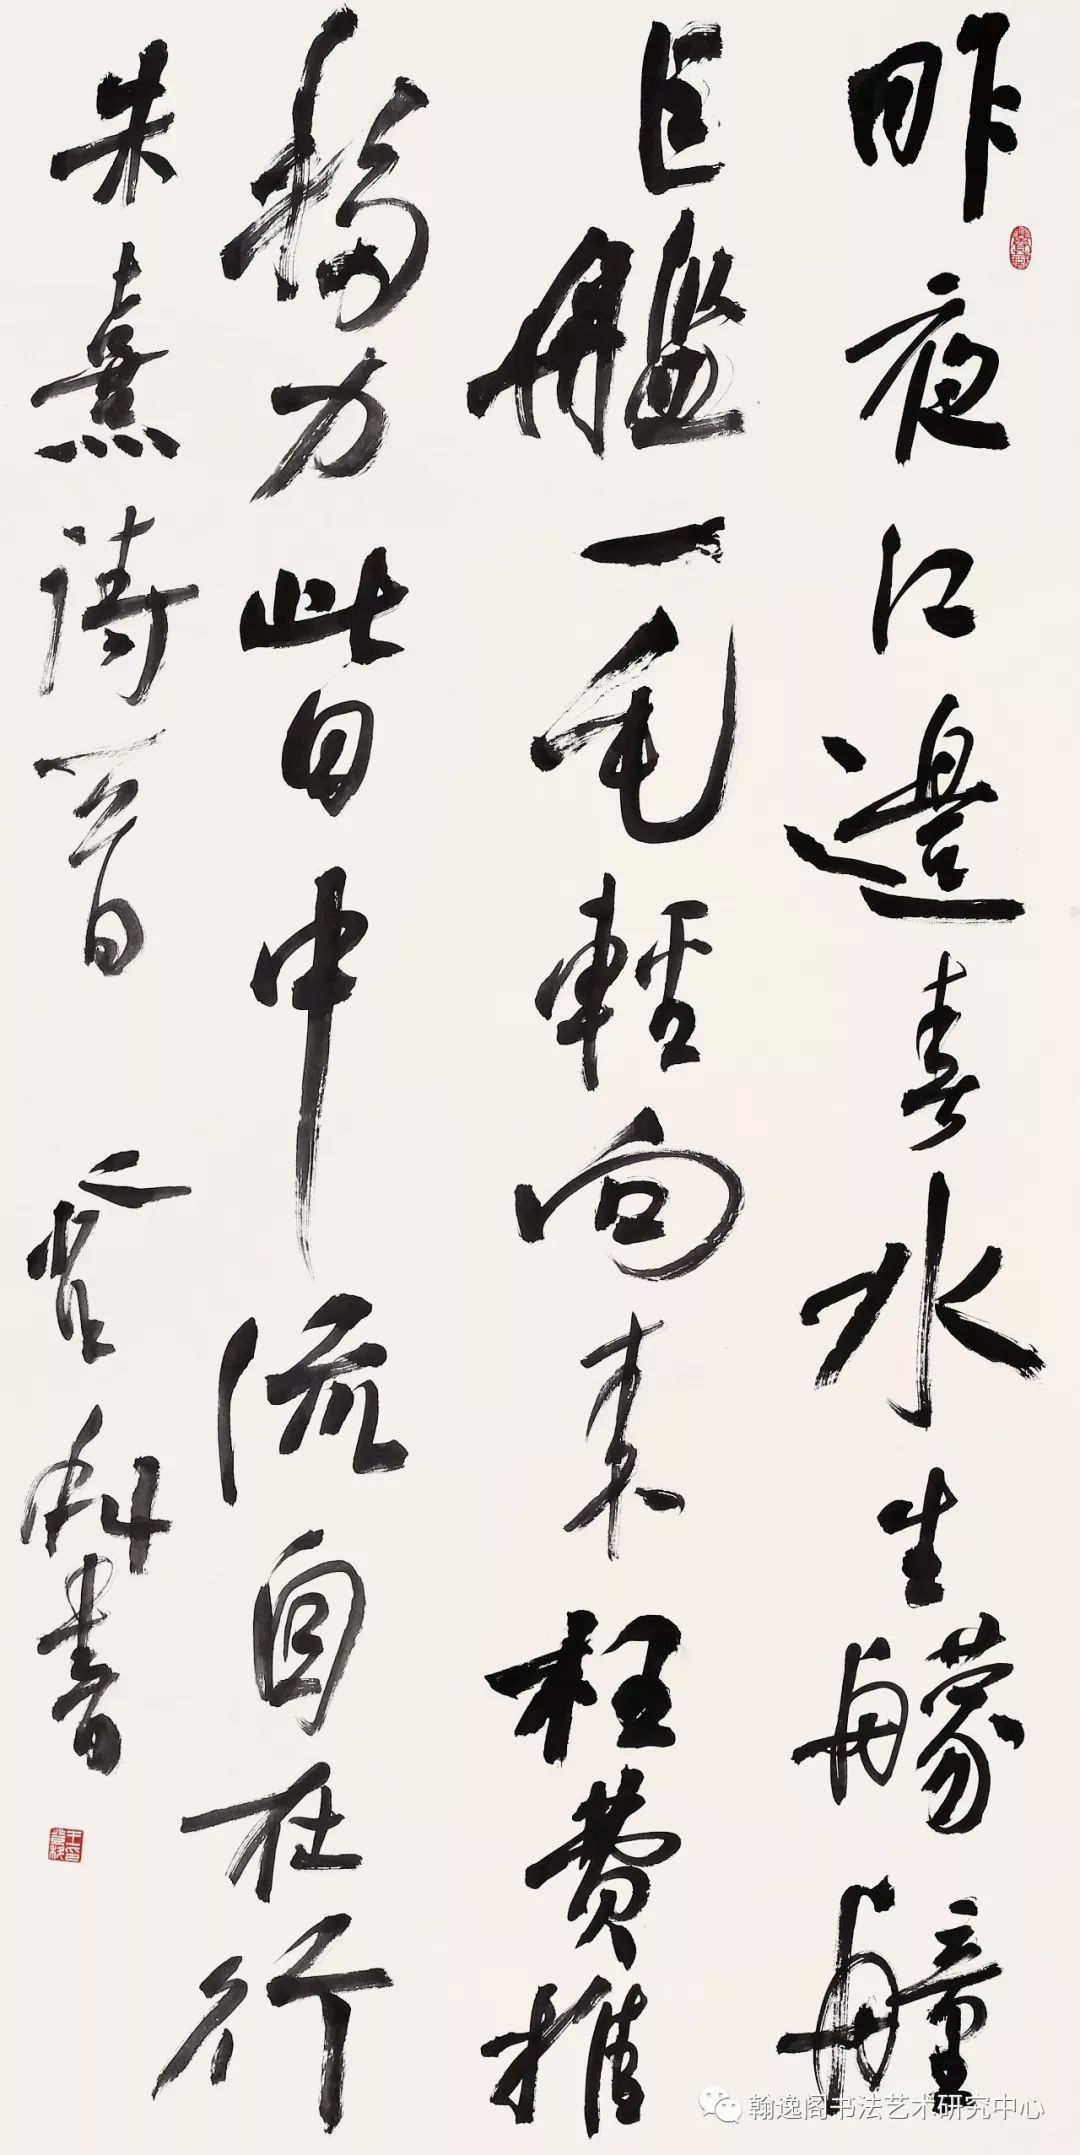 昨夜江邊春水生艨艟
巨艦一毛輕向來枉費推
移力此日中流自在行
朱熹詩一首 登科書
翰逸阁书法艺术研究中心